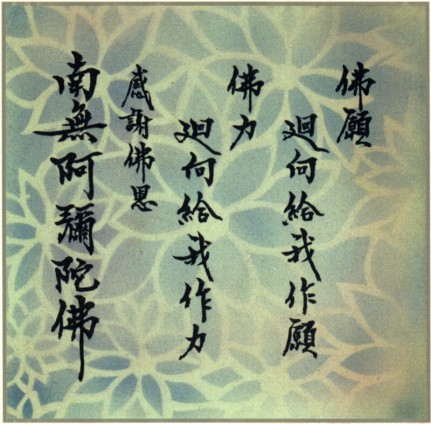 佛願
迴向給我作願
佛力
迴向給我作力
感謝佛恩
南無阿彌陀佛